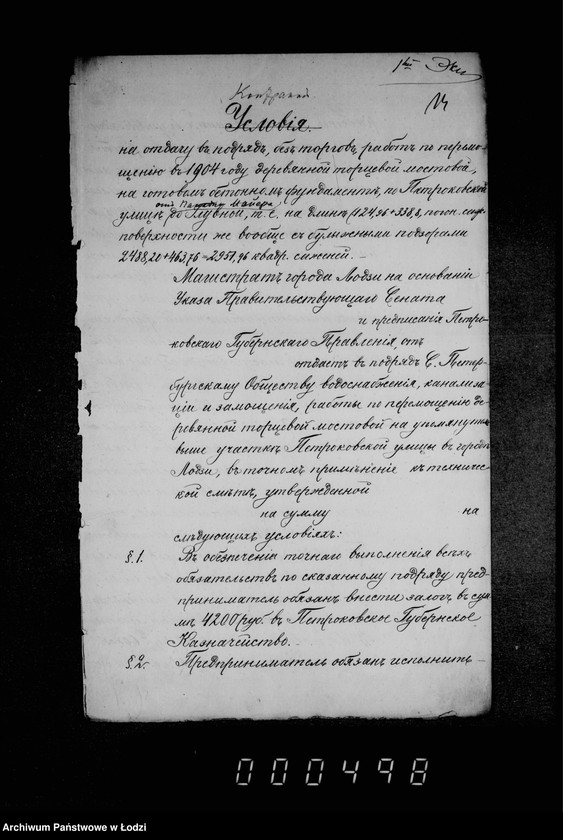 1й Экз
14
Контракт
Условія
на отдачу въ подрядъ, безъ торговъ, работъ по перемо-
щенію въ 1904 году деревянной торцевой мостовой,
на готовомъ бетонномъ фундаментѣ, по Петроковской
отъ Пассажа Майера
улицѣ до Главной, т.е. на длинѣ 1124,96 + 338,8 погон. саж.
поверхности же вообще съ булыжными подзорами
2488,20 + 463,76 = 2951,96 квадр. саженей. —
Магистратъ города Лодзи на основаніи
Указа Правительствующаго Сената
и предписанія Петро-
ковскаго Губернскаго Правленія, отъ
отдастъ въ подрядъ С. Петер-
бургскому Обществу водоснабженія, канализа-
ціи и замощенія, работы по перемощенію де-
ревянной торцевой мостовой на упомянутомъ
выше участкѣ Петроковской улицы въ городѣ
Лодзи, въ точномъ примѣненіе къ техничес-
кой смѣтѣ, утвержденной
на сумму на
слѣдующихъ условіяхъ:
§. 1. Въ обезпеченіе точнаго выполненія всѣхъ
обязательствъ по сказанному подряду пред-
приниматель обязанъ внести залогъ въ сум-
мѣ 4200 руб. въ Петроковское Губернское
Казначейство. —
§. 2. Предприниматель обязанъ исполнить
000498
Archiwum Państwowe w Łodzi